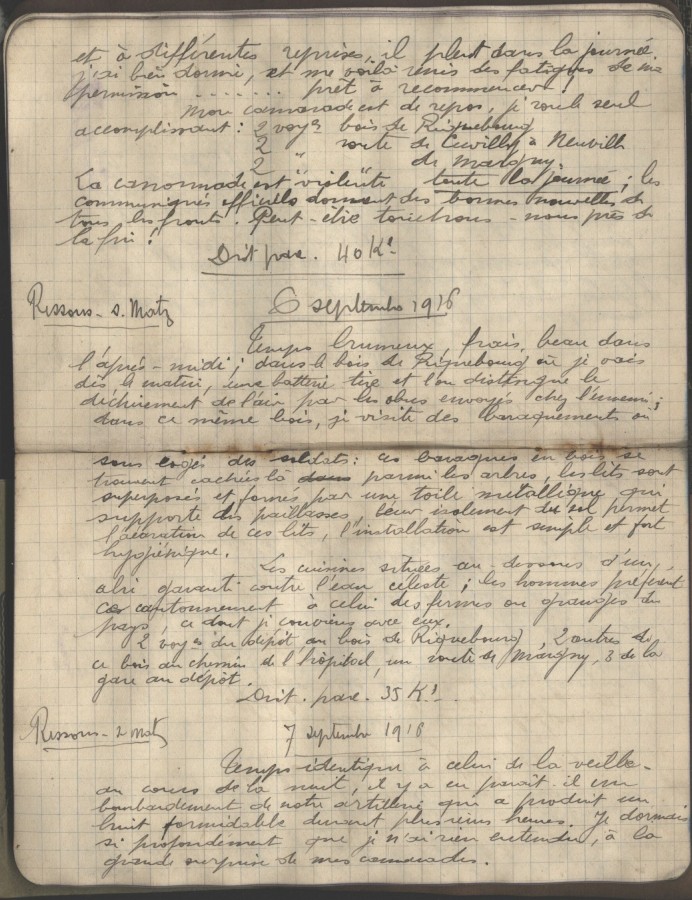 et à différentes reprises, il pleut dans la journée
j'ai bien dormi, et me voilà remis des fatigues de ma
permission ....... prêt à recommencer !
Mon camarade est de repos, je roule seul
accomplissant : 2 voyes bois de Riquebourg
2 " route de Cuvilly à Neuville
2 " de Margny.
La canonnade est "violente" toute la journée ; les
communiqués officiels donnent des bonnes nouvelles de
tous les fronts. Peut-être touchons-nous près de
la fin !
Dist. parc. 40 Krs
Ressons-s. Matz
6 septembre 1916
Temps brumeux, frais, beau dans
l'après-midi ; dans le bois de Riquebourg où je vais
dès le matin, une batterie tire et l'on distingue le
déchirement de l'air par les obus envoyés chez l'ennemi ;
dans ce même bois, je visite des baraquements où
sous logés des soldats : ces baraques en bois se
trouvent cachées là dans parmi les arbres, les lits sont
superposés et formés par une toile métallique qui
supporte des paillasses, leur isolement du sol permet
l'aération de ces lits, l'installation est simple et fort
hygiénique.
Les cuisines situées au-dessous d'un
abri garanti contre l'eau céleste ; les hommes préfèrent
ce cantonnement à celui des fermes ou granges du
pays, ce dont je conviens avec eux.
2 voyes du dépôt au bois de Riquebourg, 2 autres de
ce bois au chemin de l'hôpital, un route de Margny, 3 de la
gare au dépôt.
Dist. parc. 35 Krs
Ressons-s Matz
7 septembre 1916
Temps identique à celui de la veille.
au cours de la nuit, il y a eu paraît-il un
bombardement de notre artillerie qui a produit un
bruit formidable durant plusieurs heures. Je dormais
si profondément que je n'ai rien entendu, à la
grande surprise de mes camarades.